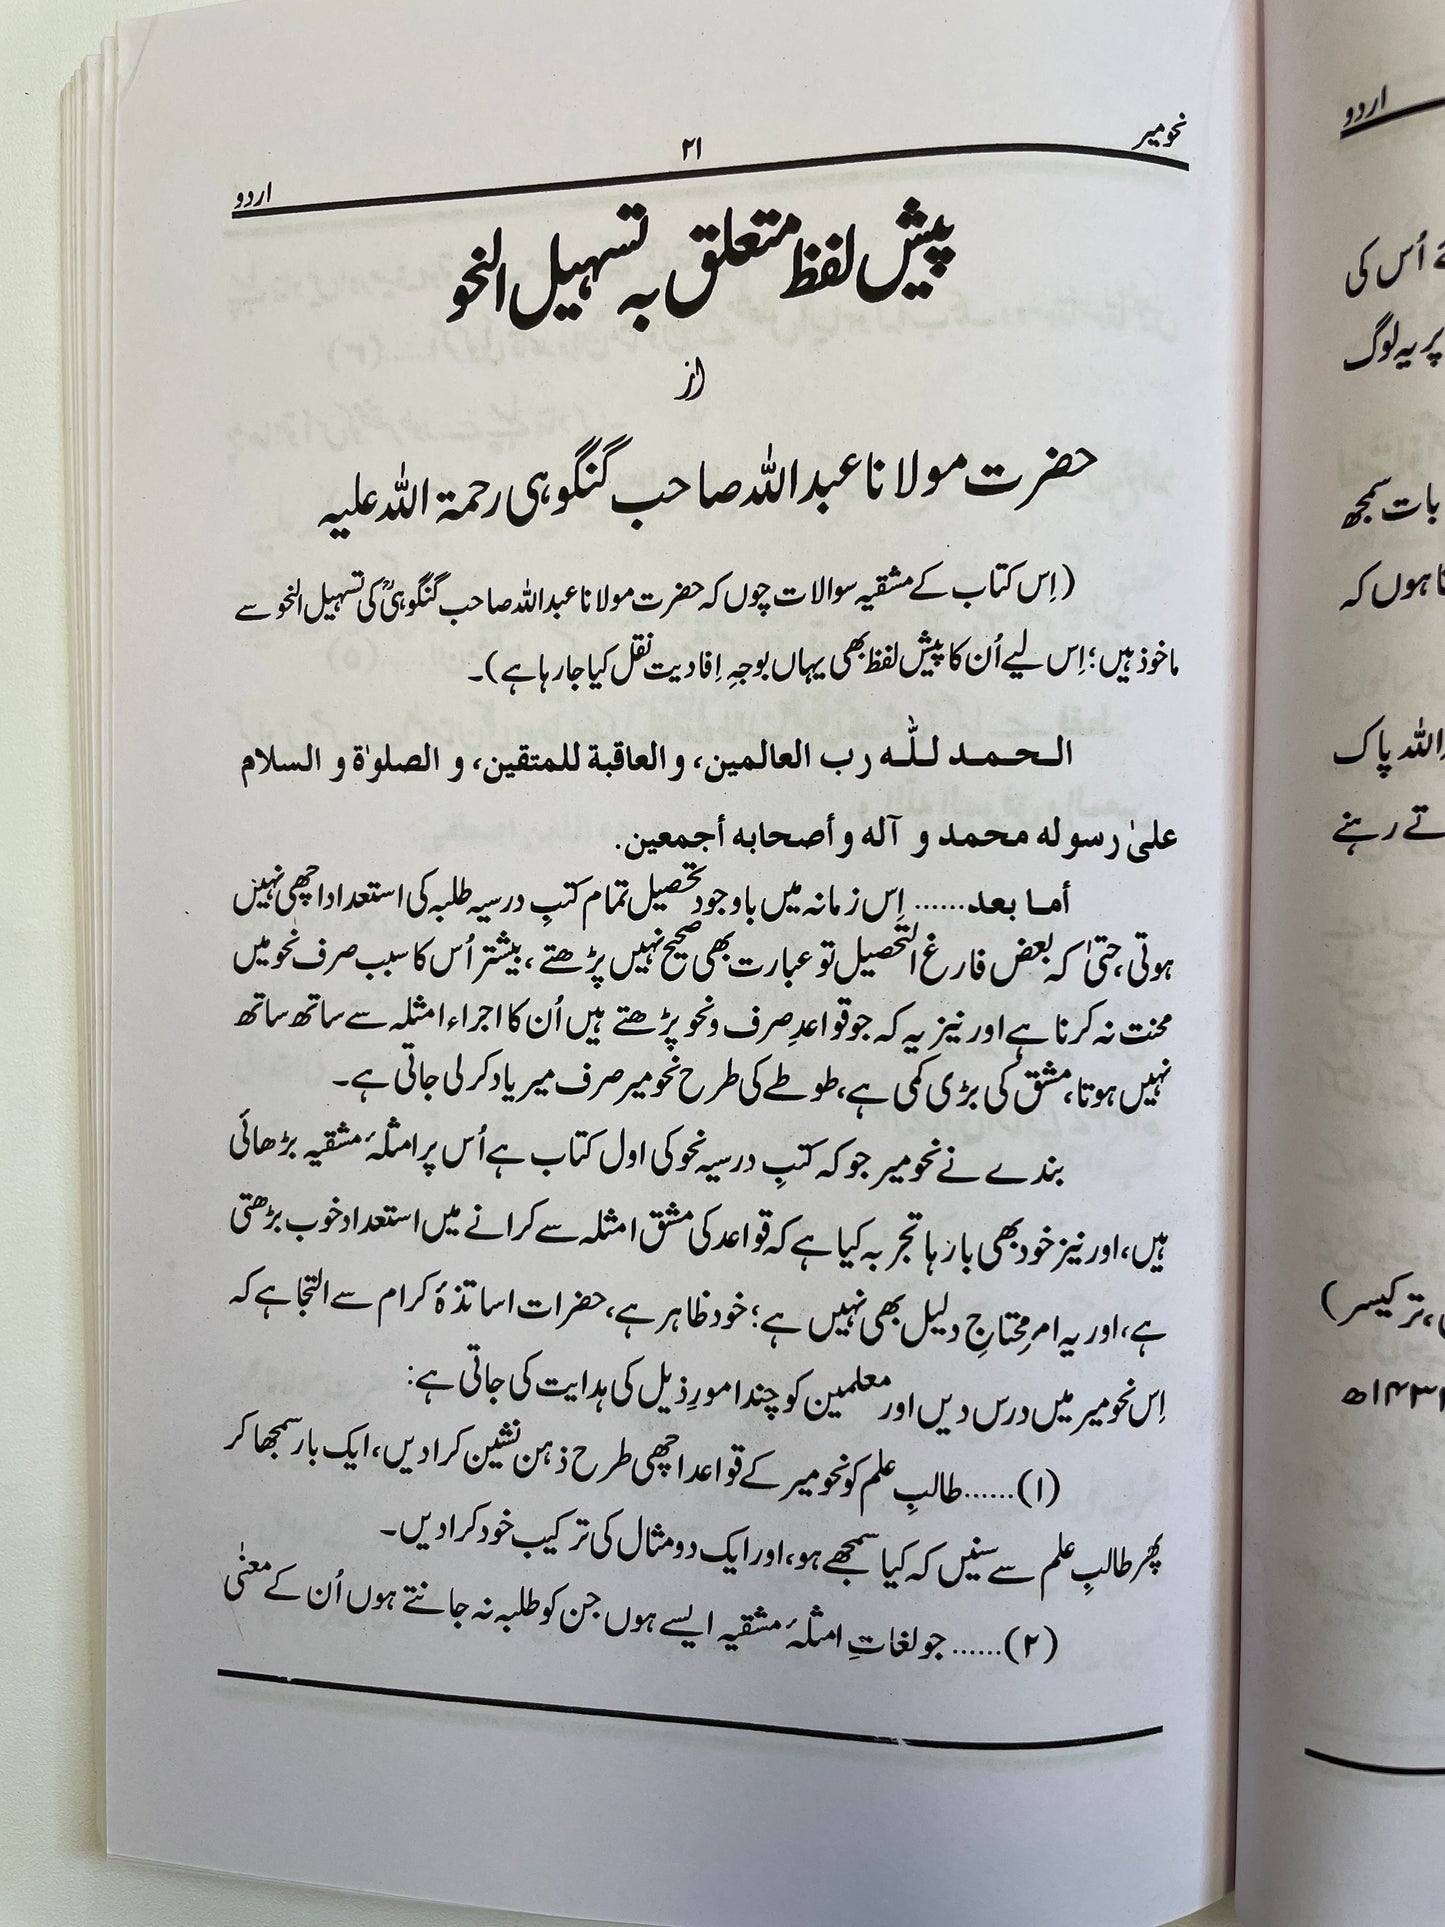 نحو میر
۲۱
اردو
پیش لفظ متعلق بہ تسہیل النحو
از
حضرت مولانا عبد اللہ صاحب گنگوہی رحمۃ اللہ علیہ
(اِس کتاب کے مشقیہ سوالات چوں کہ حضرت مولانا عبد اللہ صاحب گنگوہیؒ کی تسہیل النحو سے
ماخوذ ہیں؛ اِس لیے اُن کا پیش لفظ بھی یہاں بوجہِ اِفادیت نقل کیا جارہا ہے)۔
الحمد للّٰہ رب العالمین، و العاقبة للمتقین، و الصلوٰة و السلام
علیٰ رسوله محمد و آله و أصحابه أجمعین.
أما بعد...... اِس زمانہ میں باوجود تحصیل تمام کتبِ درسیہ طلبہ کی استعداد اچھی نہیں
ہوتی، حتیٰ کہ بعض فارغ التحصیل تو عبارت بھی صحیح نہیں پڑھتے، بیشتر اُس کا سبب صرف نحو میں
محنت نہ کرنا ہے اور نیز یہ کہ جو قواعدِ صرف ونحو پڑھتے ہیں اُن کا اجراء امثلہ سے ساتھ ساتھ
نہیں ہوتا، مشق کی بڑی کمی ہے، طوطے کی طرح نحو میر صرف میر یاد کر لی جاتی ہے۔
بندے نے نحو میر جو کہ کتبِ درسیہ نحو کی اول کتاب ہے اُس پر امثلۂ مشقیہ بڑھائی
ہیں، اور نیز خود بھی بارہا تجربہ کیا ہے کہ قواعد کی مشق امثلہ سے کرانے میں استعداد خوب بڑھتی
ہے، اور یہ امر محتاجِ دلیل بھی نہیں ہے؛ خود ظاہر ہے، حضرات اساتذۂ کرام سے التجا ہے کہ
اِس نحو میر میں درس دیں اور معلمین کو چند امورِ ذیل کی ہدایت کی جاتی ہے:
(۱)...... طالبِ علم کو نحو میر کے قواعد اچھی طرح ذہن نشین کرادیں، ایک بار سمجھا کر
پھر طالبِ علم سے سنیں کہ کیا سمجھے ہو، اور ایک دو مثال کی ترکیب خود کرادیں۔
(۲)...... جو لغاتِ امثلۂ مشقیہ ایسے ہوں جن کو طلبہ نہ جانتے ہوں اُن کے معنی
اردو
اُس کی
پر یہ لوگ
بات سمجھ
ہوں کہ
اللہ پاک
تے رہنے
ترکیسر)